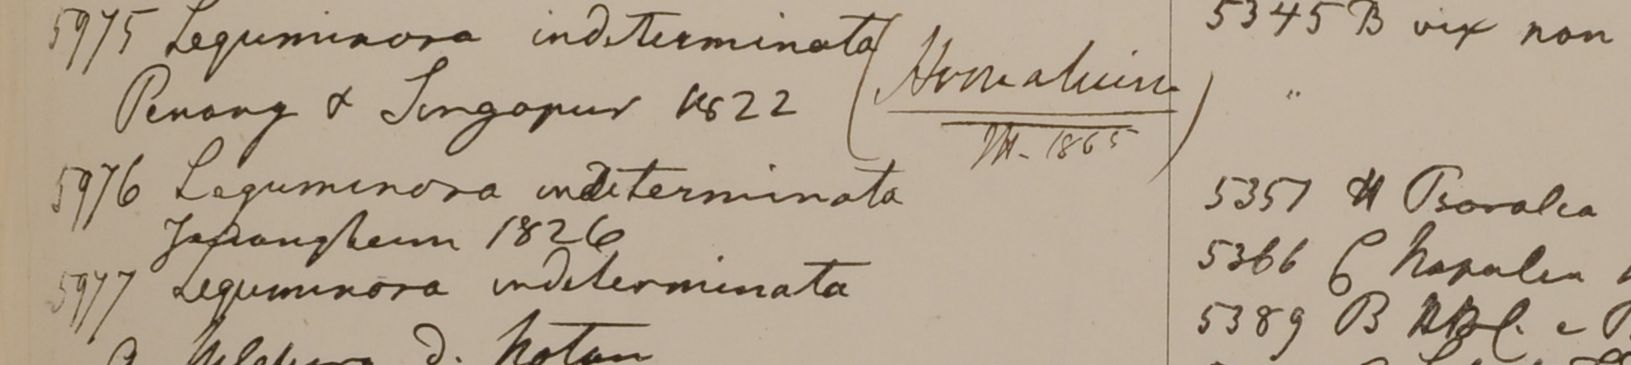 5975 Leguminosa indeterminata
Penang & Singapur 1822
(Hornaluin
M. 1865)
5976 Leguminosa indeterminata
1826
5977 Leguminosa indeterminata
d. Notan
5345 B vix non
"
5351 H Psoralea
5366 C Napalea
5389 B HBC. e